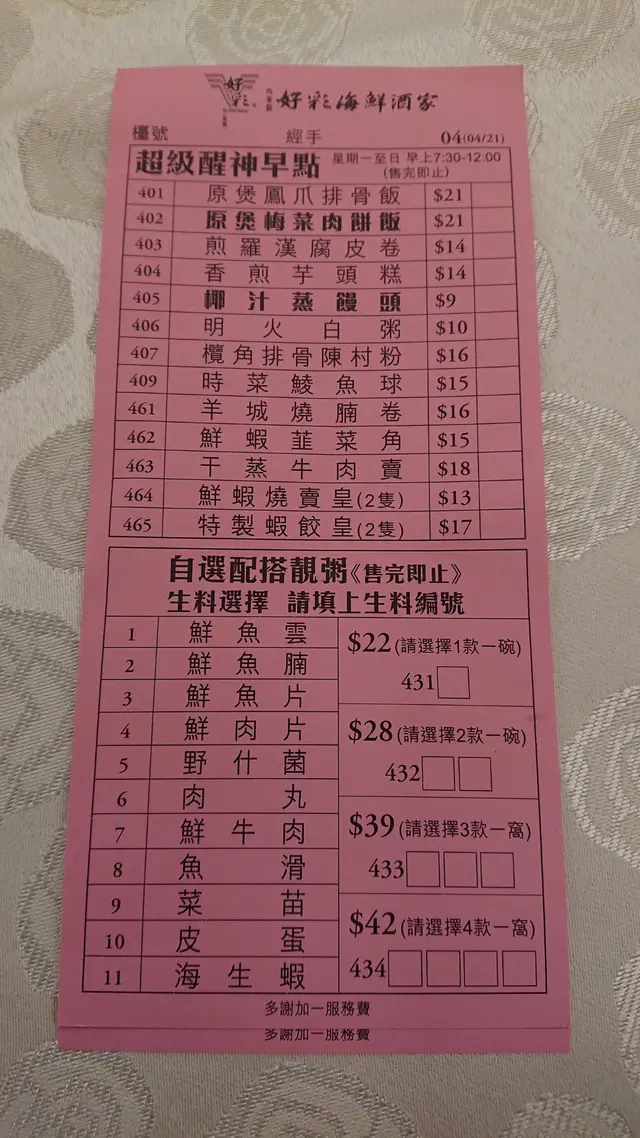 好彩
好彩海鮮酒家
檯號 經手 04(04/21)
超級醒神早點 星期一至日 早上7:30-12:00
(售完即止)
401 原煲鳳爪排骨飯 $21
402 原煲梅菜肉餅飯 $21
403 煎羅漢腐皮卷 $14
404 香煎芋頭糕 $14
405 椰汁蒸饅頭 $9
406 明火白粥 $10
407 欖角排骨陳村粉 $16
409 時菜鯪魚球 $15
461 羊城燒腩卷 $16
462 鮮蝦韮菜角 $15
463 干蒸牛肉賣 $18
464 鮮蝦燒賣皇(2隻) $13
465 特製蝦餃皇(2隻) $17
自選配搭靚粥《售完即止》
生料選擇 請填上生料編號
1 鮮魚雲
2 鮮魚腩
3 鮮魚片
4 鮮肉片
5 野什菌
6 肉丸
7 鮮牛肉
8 魚滑
9 菜苗
10 皮蛋
11 海生蝦
$22(請選擇1款一碗)
431
$28(請選擇2款一碗)
432
$39(請選擇3款一窩)
433
$42(請選擇4款一窩)
434
多謝加一服務費
多謝加一服務費